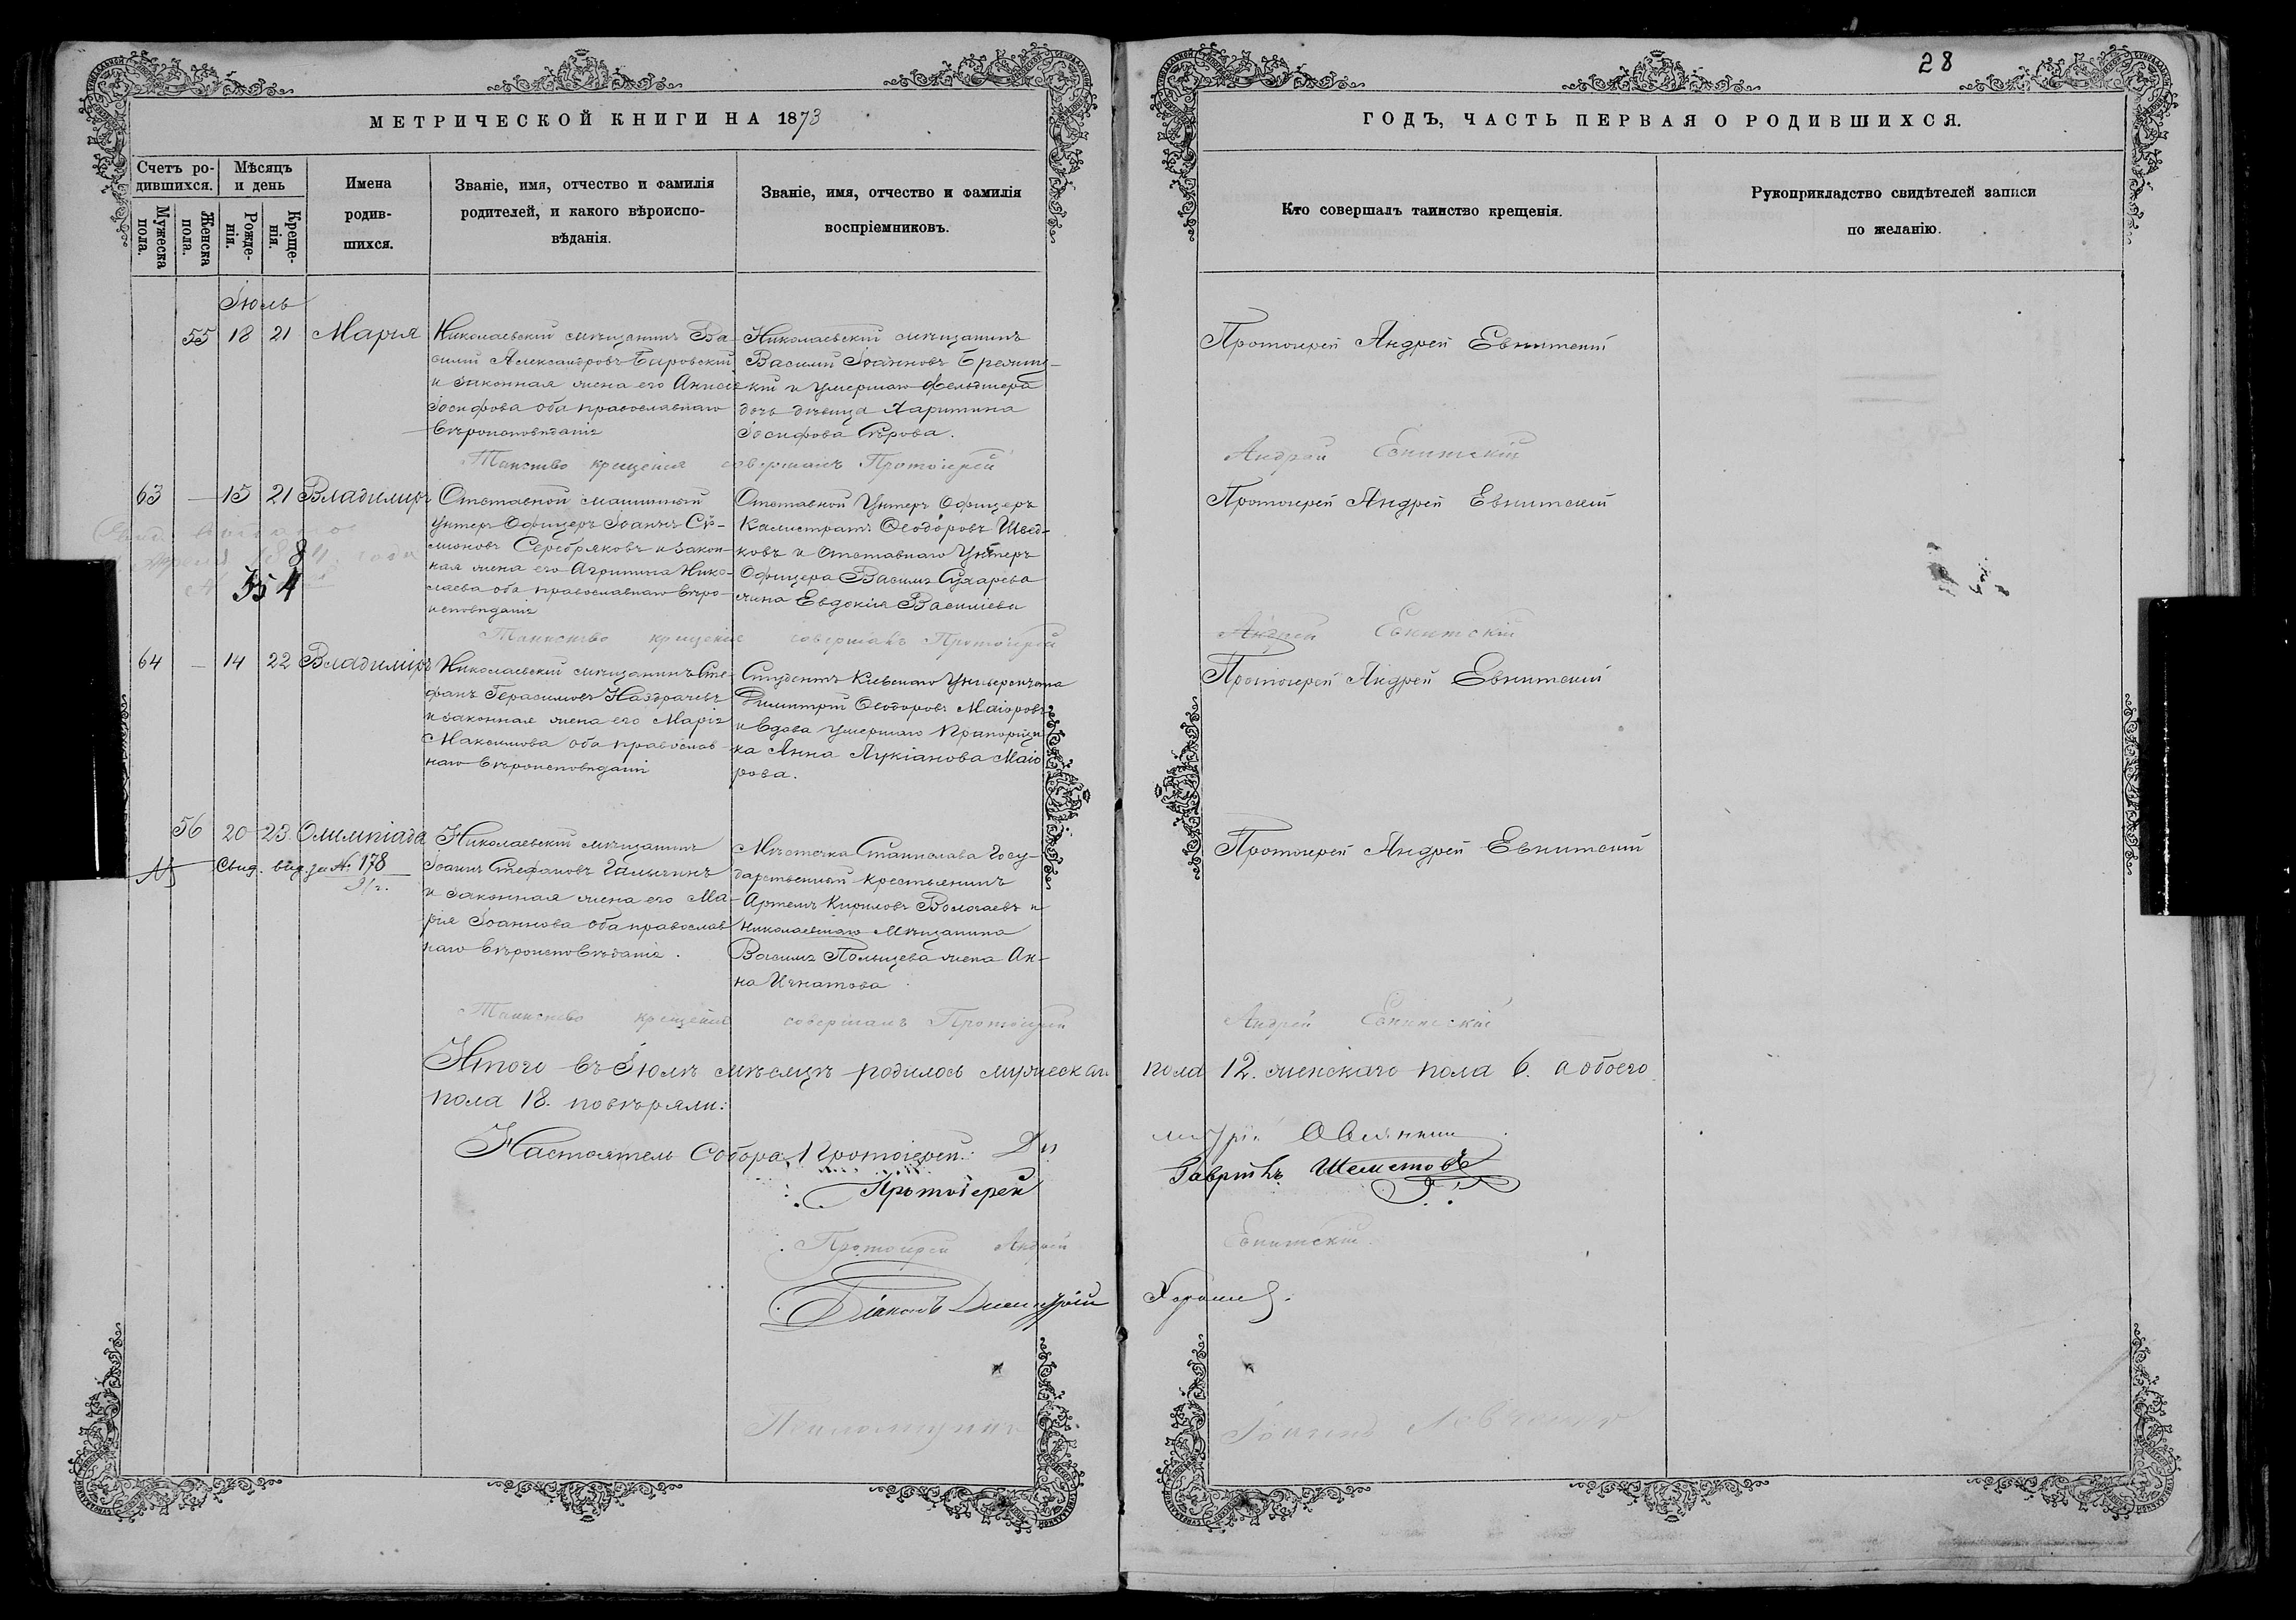 28
МЕТРИЧЕСКОЙ КНИГИ НА 1873
ГОДЪ, ЧАСТЬ ПЕРВАЯ О РОДИВШИХСЯ.
Счетъ ро-
дившихся.
Мѣсяцъ
и день
Мужеска
пола.
Женска
пола.
Рожде-
нія.
Креще-
нія.
Имена
родив-
шихся.
Званіе, имя, отчество и фамилія
родителей, и какого вѣроиспо-
вѣданія.
Званіе, имя, отчество и фамилія
воспріемниковъ.
Кто совершалъ таинство крещенія.
Рукоприкладство свидѣтелей записи
по желанію.
Іюль
55 18 21 Марія
Николаевскій мѣщанинъ Ва-
силій Александровъ
и законная жена его
Іосифова оба православнаго
вѣроисповѣданія
Николаевскій мѣщанинъ
Василій Іоанновъ
и умершаго Фельдшера
дочь дѣвица Харитина
Іосифова
Протоіерей Андрей Евнитскій
Таинство крещенія совершалъ Протоіерей
Андрей Евнитскій
63 — 15 21 Владиміръ
Отставной
Унтеръ Офицеръ Іоаннъ Си-
меоновъ Серебряковъ и закон-
ная жена его Агрипина Нико-
лаева оба православнаго вѣро-
исповѣданія
Отставной Унтеръ Офицеръ
Калистратъ Ѳеодоровъ Швед-
ковъ и Отставнаго Унтеръ
Офицера Василія Сухарева
жена Евдокія Василіева
Протоіерей Андрей Евнитскій
354
Таинство крещенія совершалъ Протоіерей
Андрей Евнитскій
64 — 14 22 Владиміръ
Николаевскій мѣщанинъ Сте-
фанъ Герасимовъ Наздрачевъ
и законная жена его Марія
Максимова оба православ-
наго вѣроисповѣданія
Студентъ Кіевскаго Университета
Димитрій Ѳеодоровъ Маіоровъ
и вдова умершаго Прапорщи-
ка Анна Лукіанова Маіо
рова.
Протоіерей Андрей Евнитскій
56 20 23 Олимпіада
Свид. выд. за № 178
Николаевскій мѣщанинъ
Іоаннъ Стефановъ Галычинъ
и законная жена его Ма-
рія Іоаннова оба православ
наго вѣроисповѣданія.
Мѣстечка Станислава Госу-
дарственный крестьянинъ
Артемъ Кириловъ и
Николаевскаго Мѣщанина
Василія Польцева жена Ан-
на Игнатова
Протоіерей Андрей Евнитскій
Таинство крещенія совершалъ Протоіерей
Андрей Евнитскій
Итого въ Іюлѣ мѣсяцѣ родилось мужескаго пола 12. женскаго пола 6. а обоего
пола 18. повѣряли:
Настоятель Собора, Протоіерей:
Протоіерей Гавріилъ Шеметовъ
Протоіерей Андрей Евнитскій
Діаконъ Димитрій
Іоаннъ